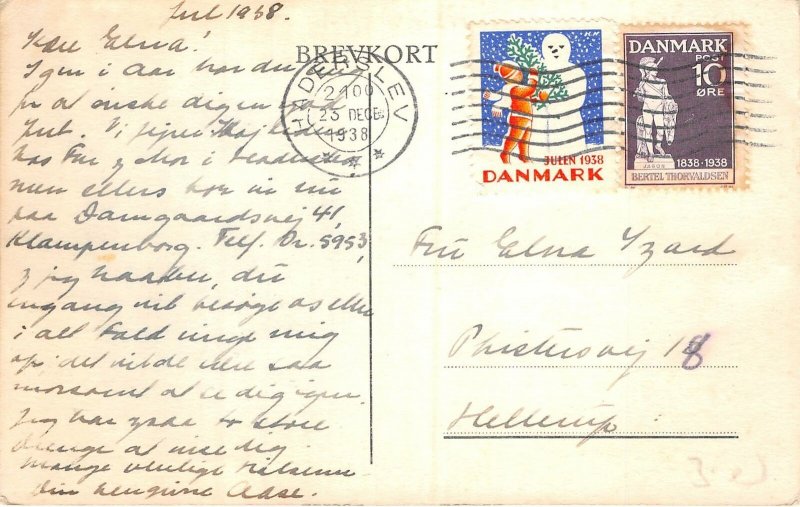 Jul 1938.
Kære Elna!
Igen i Aar har du mig
for at ønske dig en god
Jul. Vi fejrer Højtiden
hos Far & Mor i Haderslev
men ellers bor vi nu
paa Damgaardsvej 41,
Klampenborg. Telf. Or. 5953,
& jeg haaber, du
engang vil besøge os eller
i alt Fald ringe mig
op, det vilde være saa
morsomt at se dig igen.
Jeg har ogsaa to store
Drenge at vise dig.
Mange venlige Hilsener
din hengivne Aase.
BREVKORT
HADERSLEV
2100
23 DECE
1938
KN
JULEN 1938
DANMARK
DANMARK
POST
10
ØRE
JASON
1838-1938
BERTEL THORVALDSEN
Fru Elna Yzard
Phistersvej 18
Hellerup